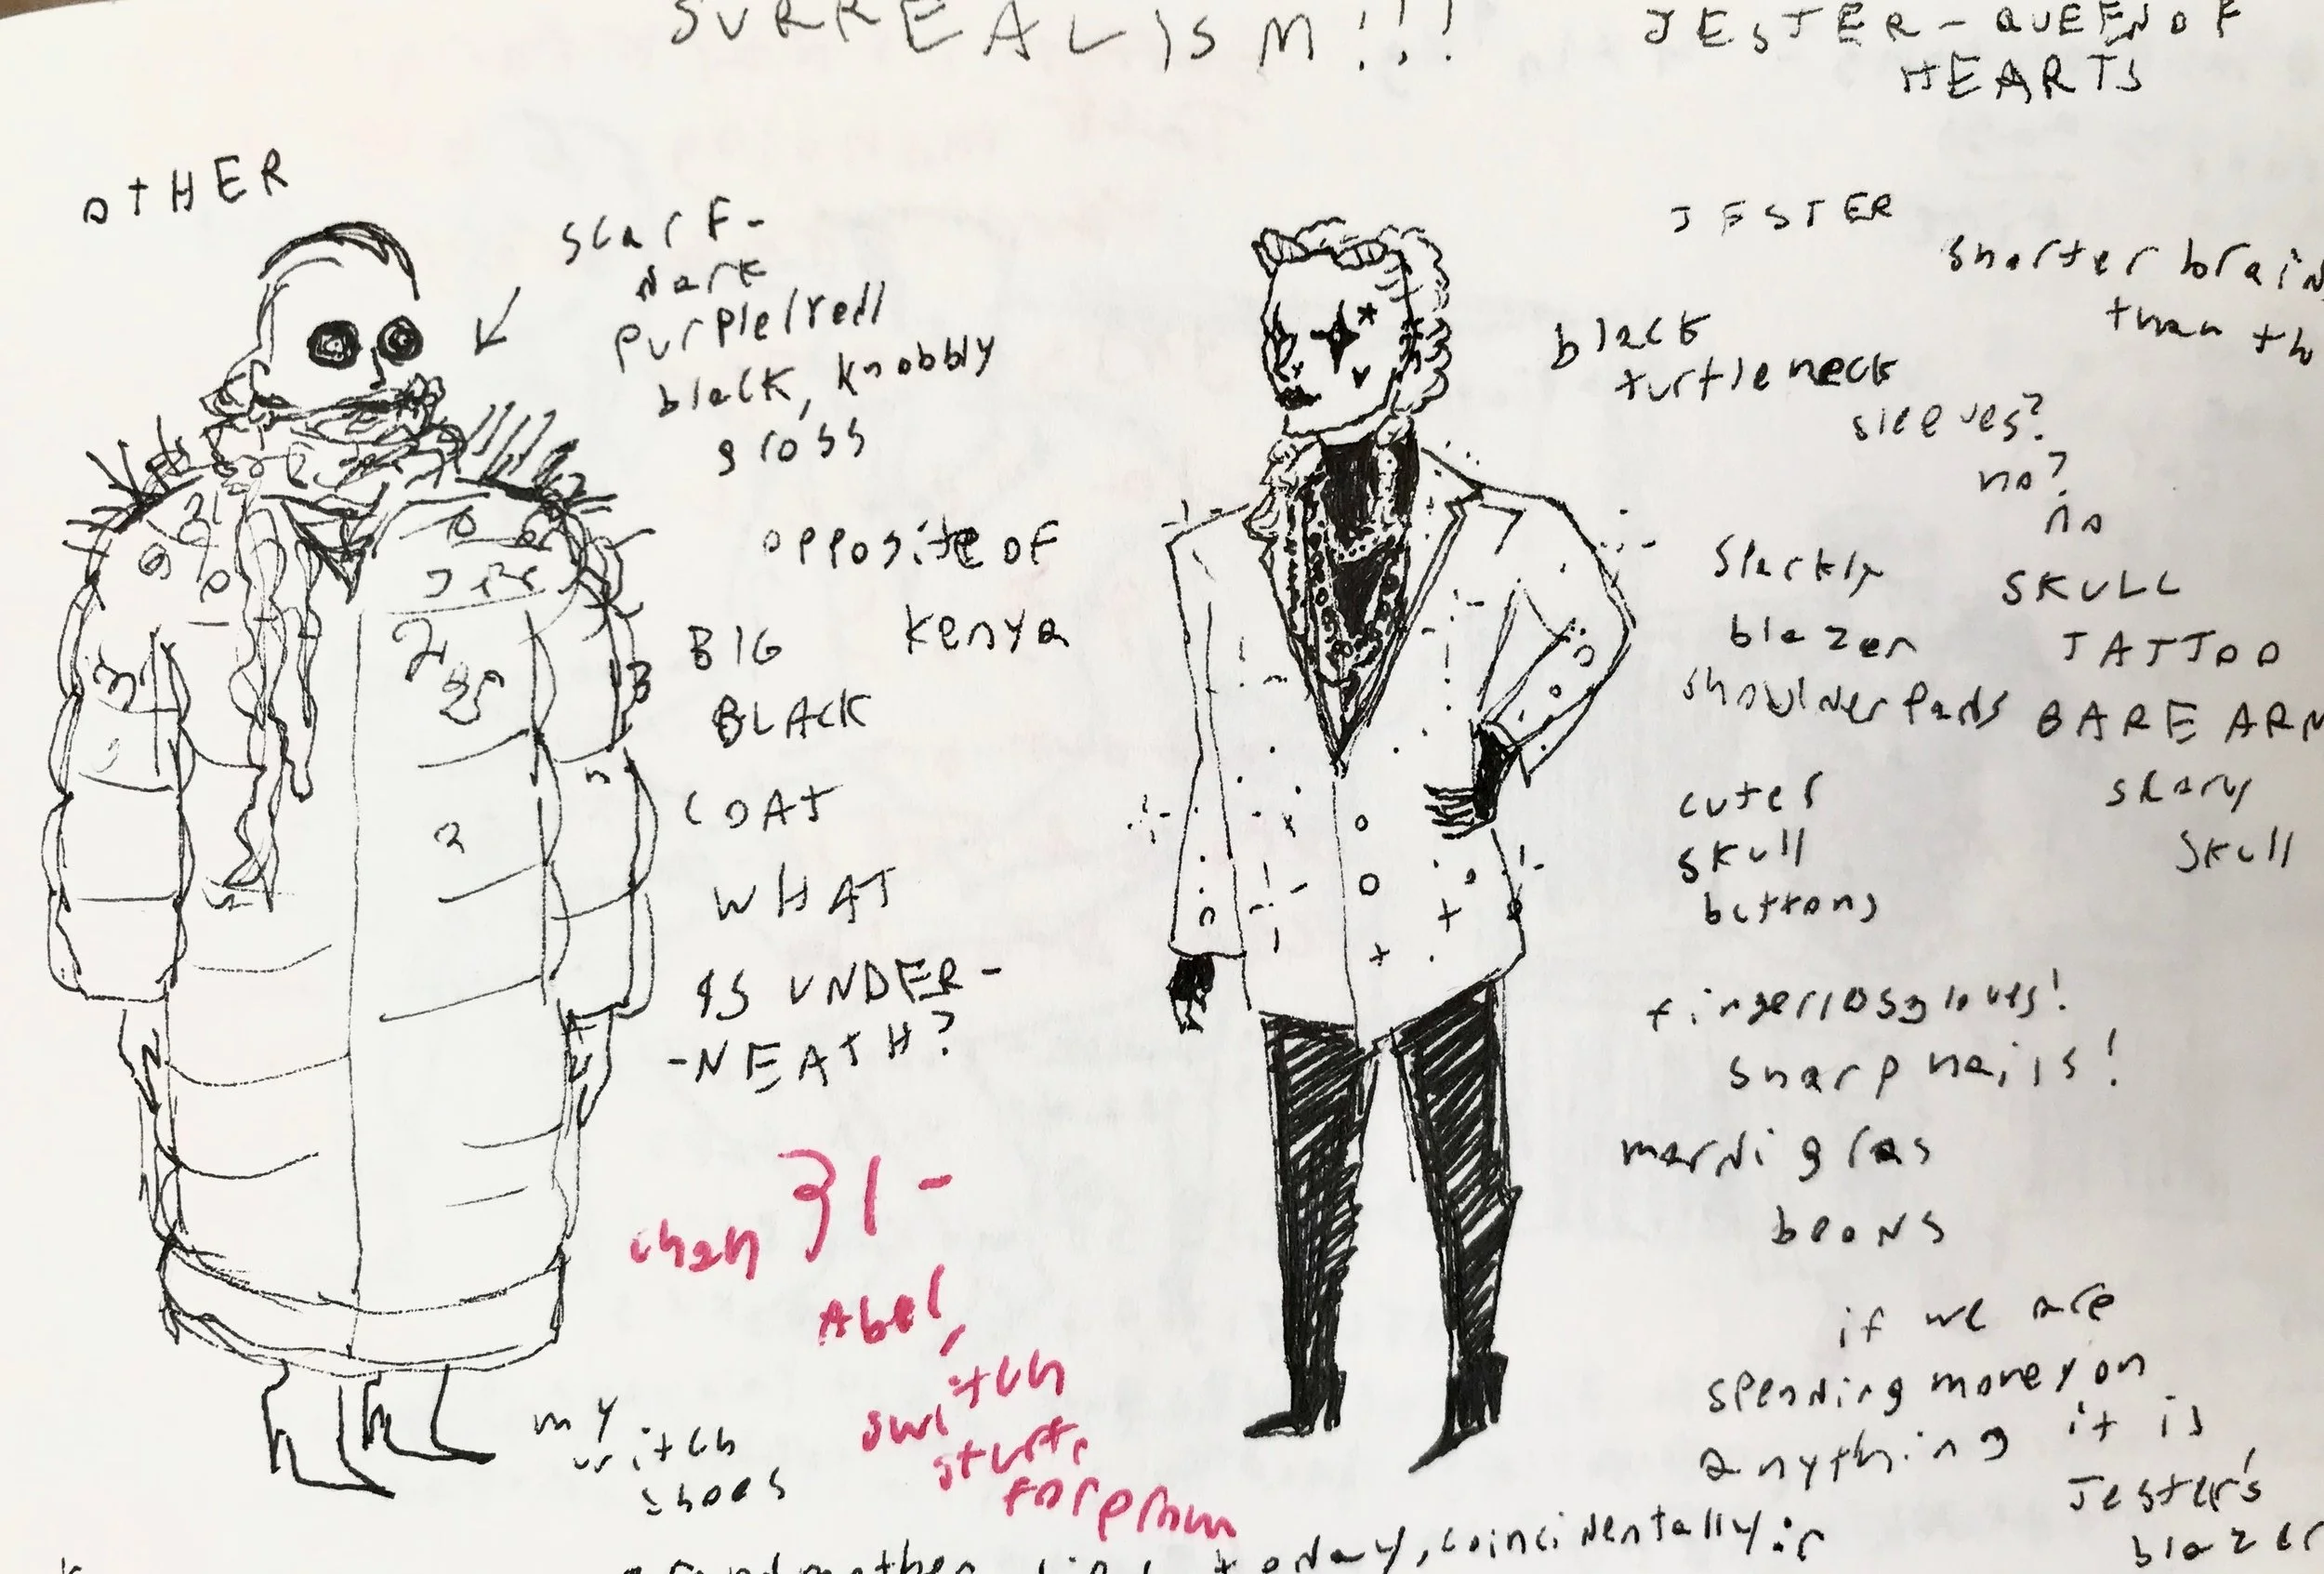 SURREALISM!!!
JESTER-QUEEN OF
HEARTS
OTHER
scarf-
dark
purple/red/
black, knobbly
gross
opposite of
kenya
BIG
BLACK
COAT
WHAT
IS UNDER-
-NEATH?
my
witch
shoes
31-
Abel,
switch
for prom
JESTER
shorter brain
than th
black
turtleneck
sleeves?
no?
no
blazer
shoulder pads
SKULL
TATTOO
BARE ARM
skary
skull
cuter
skull
buttons
sharp nails!
mardi gras
if we are
spending money on
anything it is
Jester's
blazer
today, coincidentally: